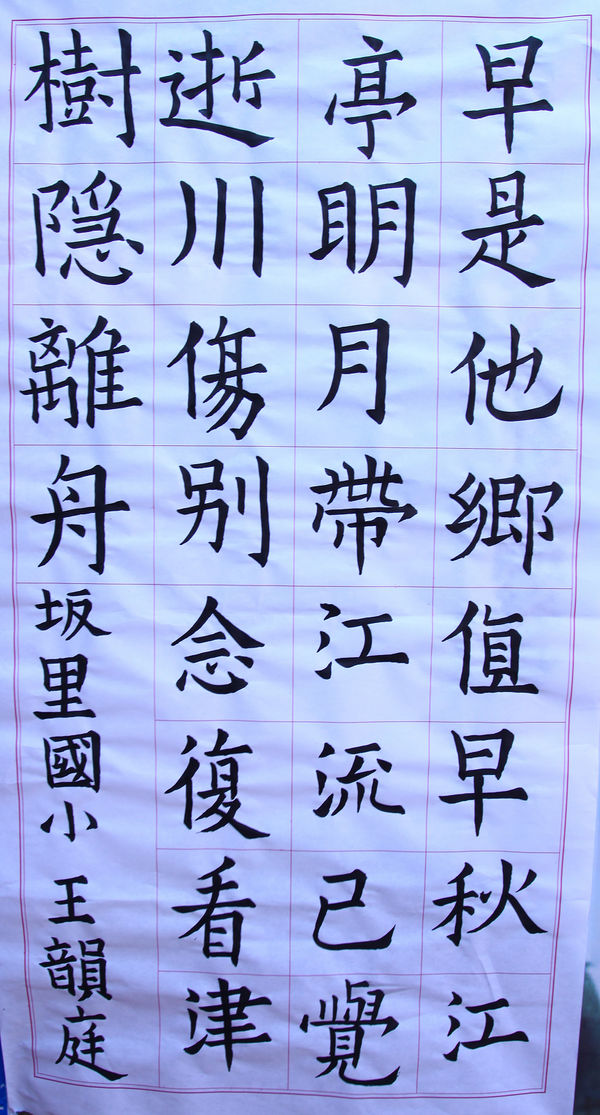 早是他鄉值早秋江
亭眀月帶江流已覺
逝川傷别念復看津
樹隱離舟
坂里國小 王韻庭